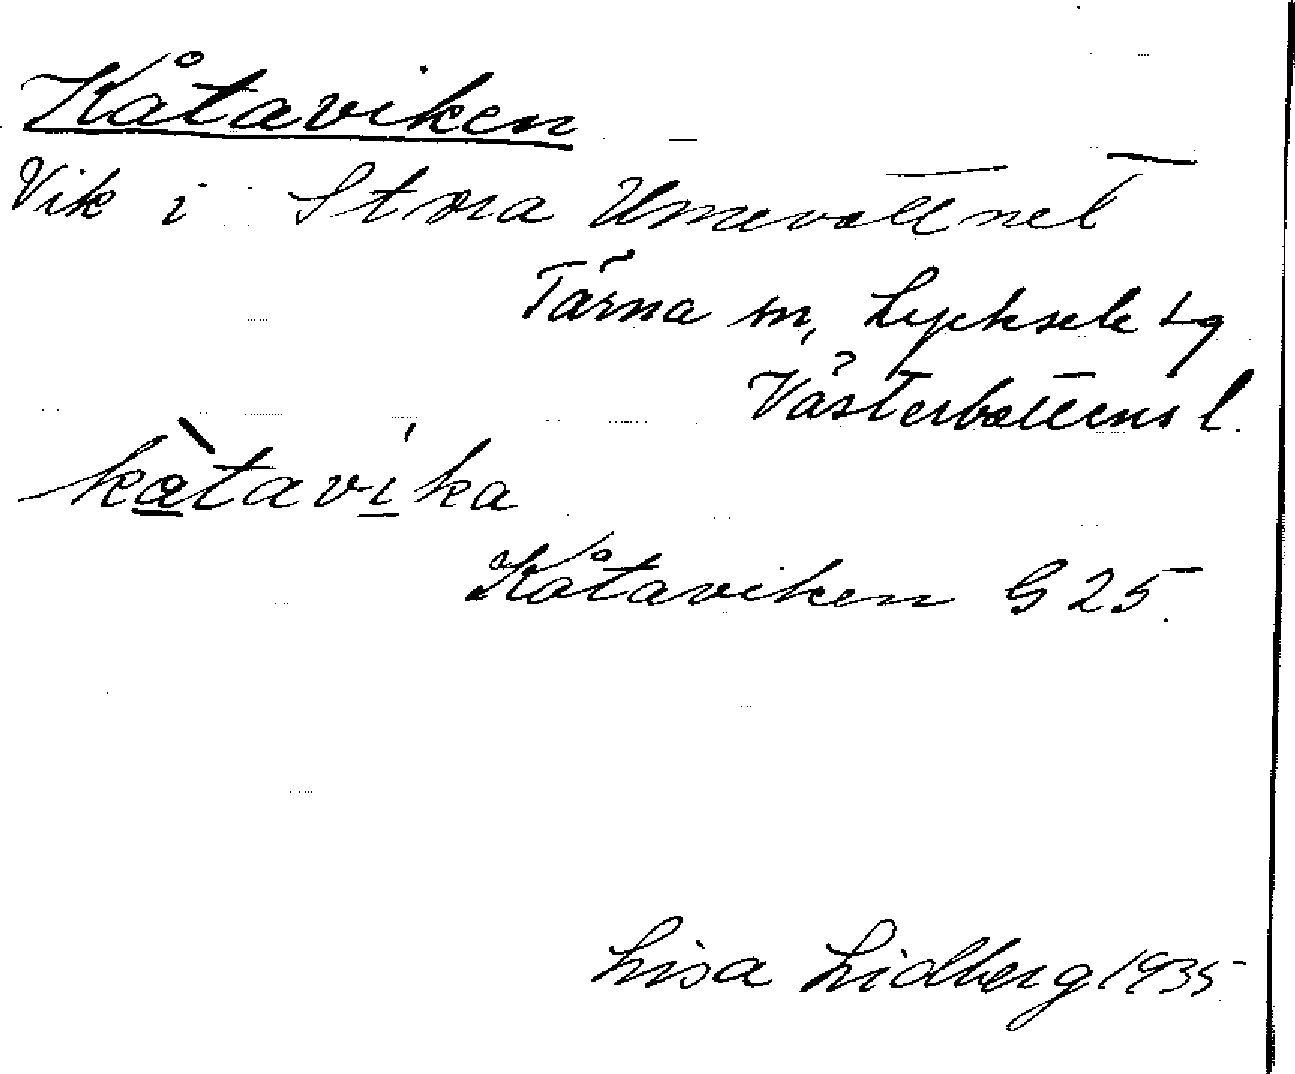 Kåtaviken
Vik i Stora Umevattnet
Tärna sn, Lycksele lg
Västerbottens l.
kåtavika
Kåtaviken G 25.
Lisa Lidberg 1935